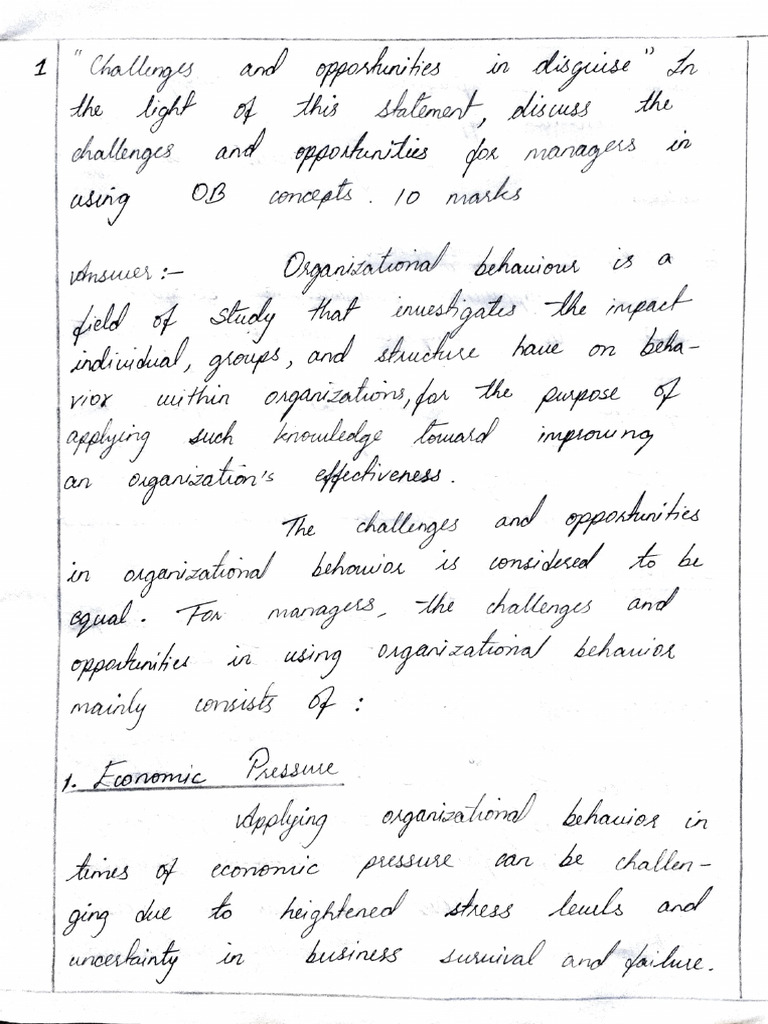 1 "Challenges and opportunities in disguise" In
the light of this statement, discuss the
challenges and opportunities for managers in
using OB concepts. 10 marks
Answer :- Organizational behaviour is a
field of study that investigates the impact
individual, groups, and structure have on beha-
vior within organizations, for the purpose of
applying such knowledge toward improving
an organization's effectiveness.
The challenges and opportunities
in organizational behavior is considered to be
equal. For managers, the challenges and
opportunities in using organizational behavior
mainly consists of :
1. Economic Pressure
Applying organizational behavior in
times of economic pressure can be challen-
ging due to heightened stress levels and
uncertainty in business survival and failure.